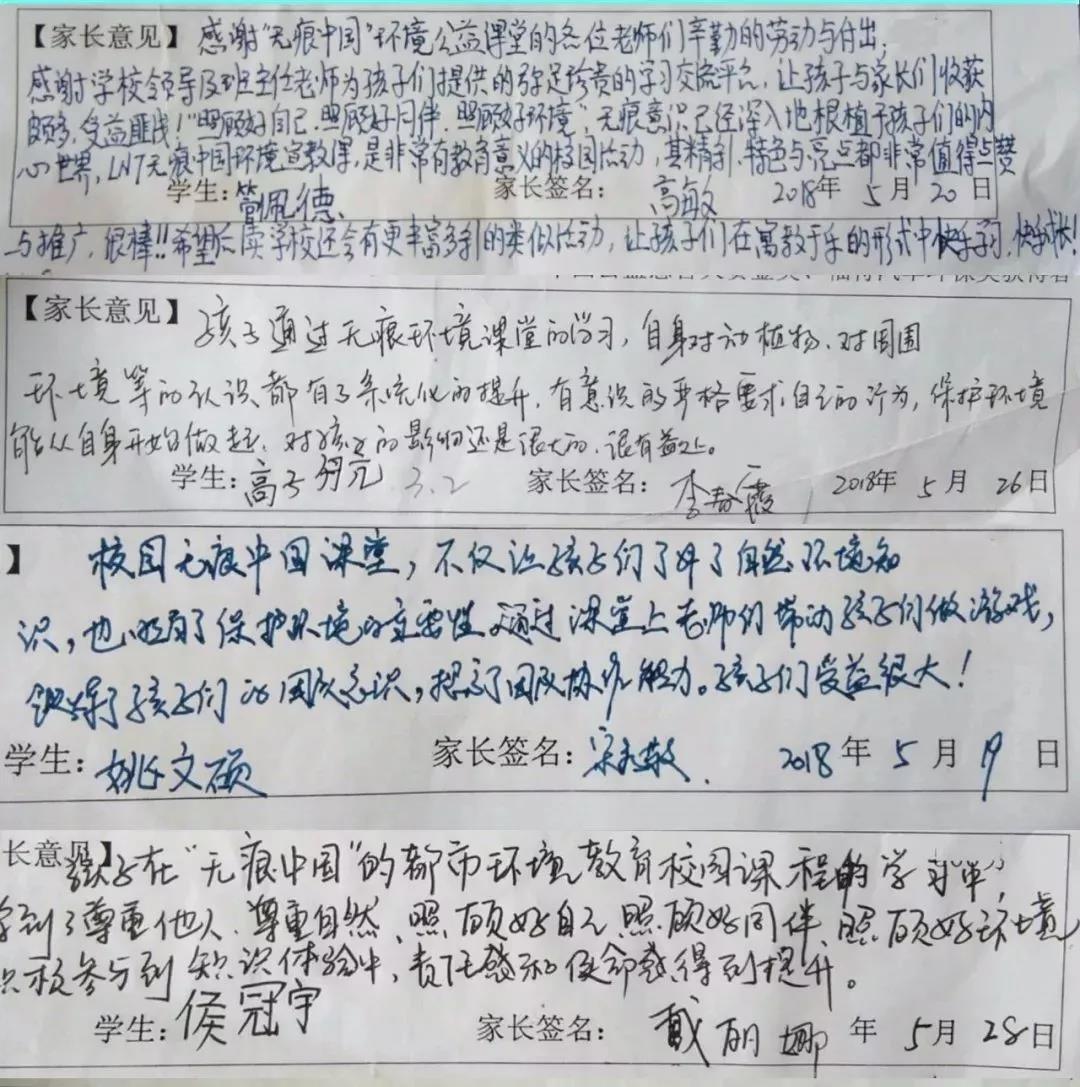 【家长意见】感谢"无痕中国"环境公益课堂的各位老师们辛勤的劳动与付出,
感谢学校领导及班主任老师为孩子们提供的弥足珍贵的学习交流平台,让孩子与家长们收获
颇多,受益匪浅!"照顾好自己,照顾好同伴,照顾好环境",无痕意识已经深入地根植于孩子们的内
心世界,LNT无痕中国环境宣教课,是非常有教育意义的校园活动,其精彩、特色与亮点都非常值得点赞
学生: 佩德 家长签名: 高敏 2018年 5月 20日
与推广,很棒!!希望后续学校还会有更丰富多彩的类似活动,让孩子们在寓教于乐的形式中快乐学习,快乐成长!
【家长意见】孩子通过无痕环境课堂的学习,自身对动植物、对周围
环境等的认识都有了系统化的提升,有意识的严格要求自己的行为,保护环境
能从自身开始做起,对孩子的影响还是很大的,很有益处。
学生:高子 元 3.2 家长签名: 李春霞 2018年 5月 26日
】 校园无痕中国课堂,不仅让孩子们了解了自然环境知
识,也明白了保护环境的重要性,通过课堂上老师们带动孩子们做游戏,
锻炼了孩子们的团队意识,提高了团队协作能力。孩子们受益很大!
学生:姚文硕 家长签名: 宋 敏 2018年 5月 19日
长意见】孩子在"无痕中国"的都市环境教育校园课程的学习中,
学到了尊重他人、尊重自然、照顾好自己、照顾好同伴、照顾好环境
积极参与到知识体验中,责任感和使命感得到提升。
学生:侯冠宇 家长签名: 戴丽娜 年 5月 28日